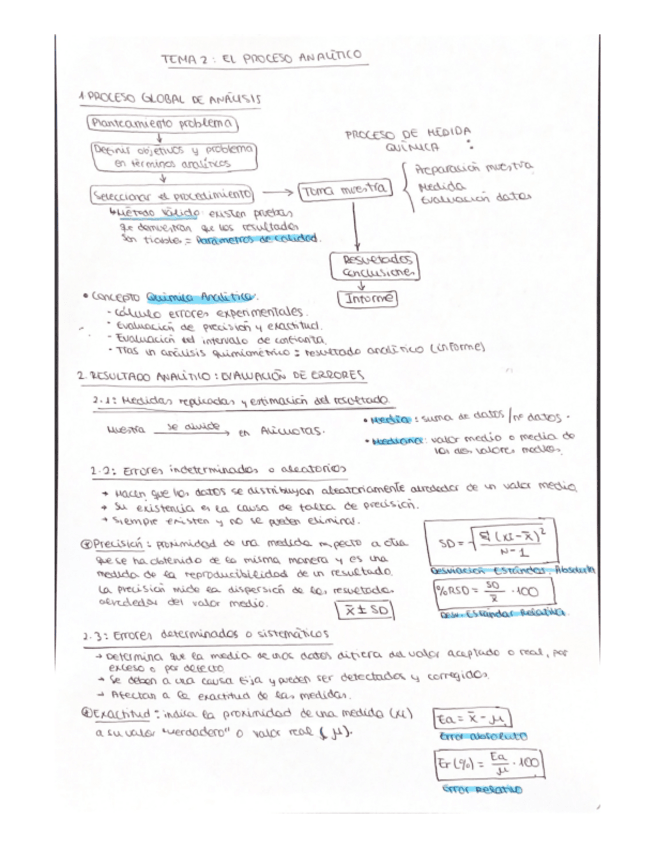 TEMA 2: EL PROCESO ANALÍTICO
1 PROCESO GLOBAL DE ANÁLISIS
Planteamiento problema
Definir objetivos y problema
en términos analíticos
Seleccionar el procedimiento
Toma muestra
PROCESO DE MEDIDA
QUÍMICA :
Preparación muestra
Medida
Evaluación datos
↳ Método válido: existen pruebas
que demuestran que los resultados
son fiables = Parámetros de calidad.
Resultados
conclusiones
Informe
• Concepto Química Analítica.
- Cálculo errores experimentales.
- Evaluación de precisión y exactitud.
- Evaluación del intervalo de confianza.
- Tras un análisis quimiométrico = resultado analítico (informe)
2. RESULTADO ANALÍTICO: EVALUACIÓN DE ERRORES
2.1: Medidas replicadas y estimación del resultado
Muestra se divide → en Alícuotas.
• Media: suma de datos / nº datos.
• Mediana: valor medio o media de
los dos valores medios.
2.2: Errores indeterminados o aleatorios
→ Hacen que los datos se distribuyan aleatoriamente alrededor de un valor medio.
→ Su existencia es la causa de falta de precisión.
→ Siempre existen y no se pueden eliminar.
Precisión: proximidad de una medida respecto a otra
que se ha obtenido de la misma manera y es una
medida de la reproducibilidad de un resultado.
La precisión mide la dispersión de los resultados
alrededor del valor medio.
x̄ ± SD
SD = √(Σ(xi - x̄)² / N - 1)
Desviación Estándar Absoluta
%RSD = SD / x̄ · 100
Desv. Estándar Relativa.
2.3: Errores determinados o sistemáticos
→ Determina que la media de unos datos difiera del valor aceptado o real, por
exceso o por defecto
→ Se deben a una causa fija y pueden ser detectados y corregidos.
→ Afectan a la exactitud de las medidas.
Exactitud: indica la proximidad de una medida (xi)
a su valor "verdadero" o valor real (μ).
Ea = x̄ - μ
Error absoluto
Er (%) = Ea / μ · 100
Error Relativo